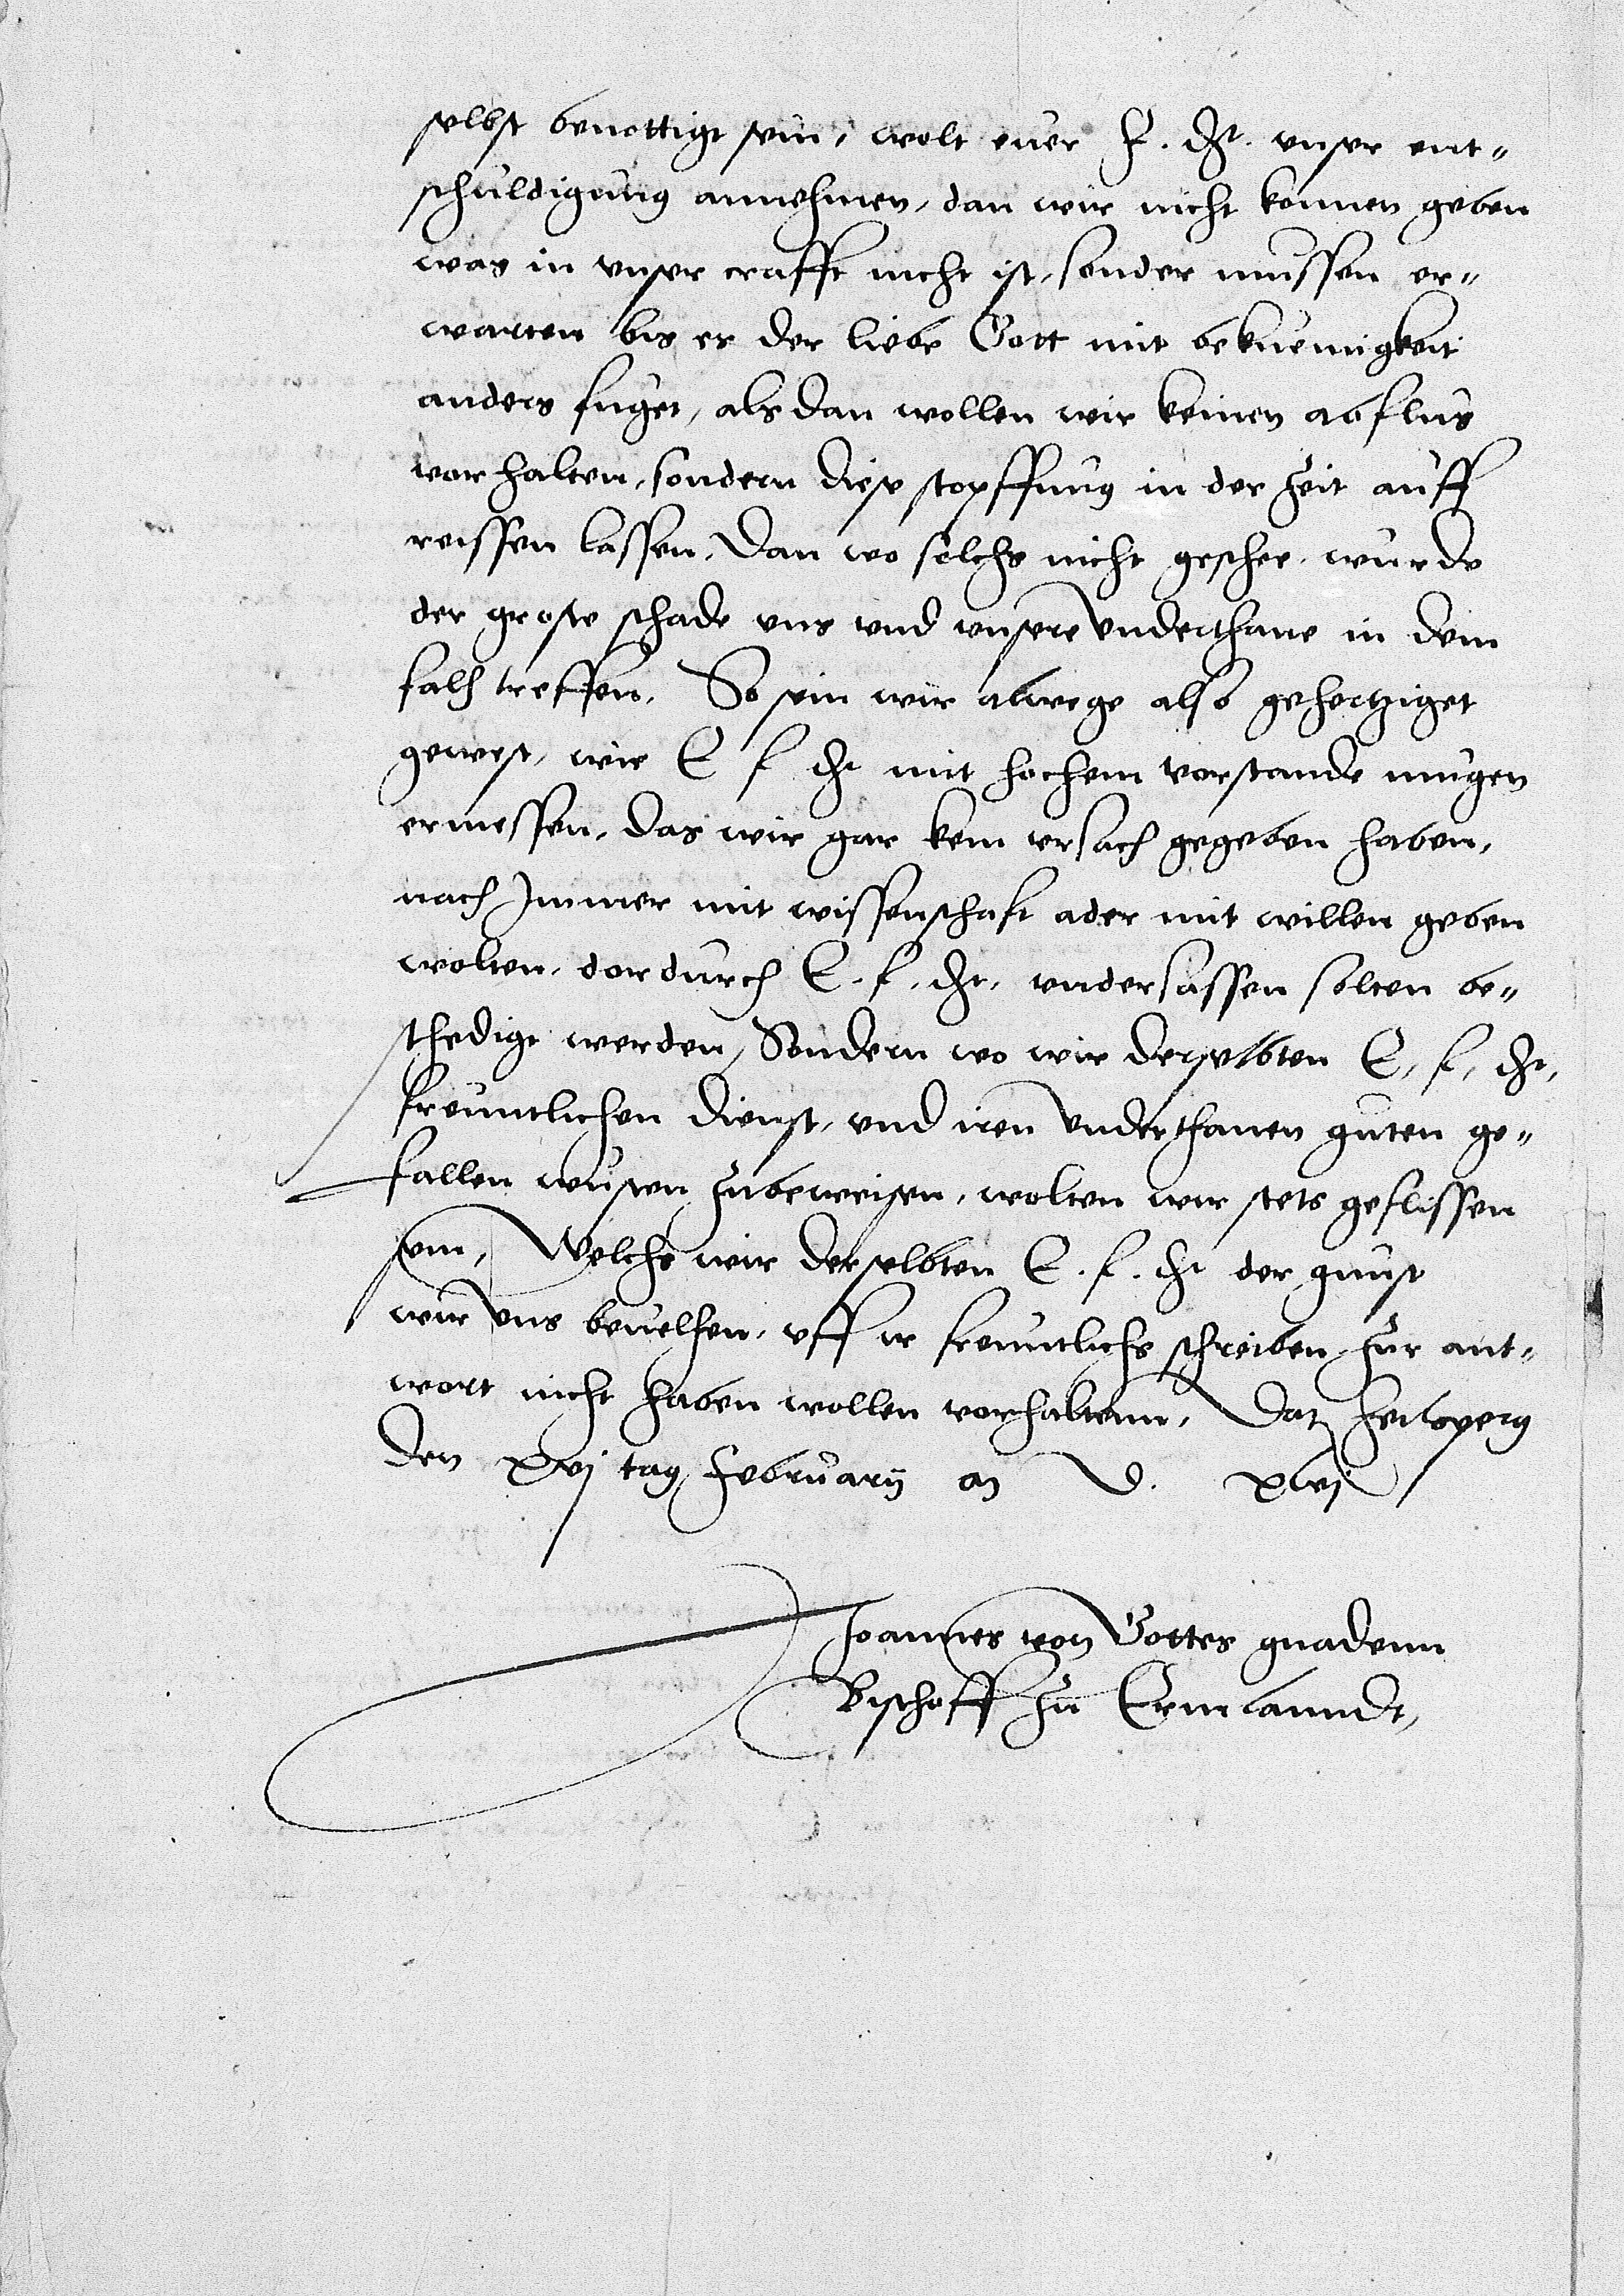 selbst benottigt sein, wolt euer F. dht. unser ent-
schuldigung annehmen, dan wir nicht konnen geben
was in unser crafft nicht ist, sonder mussen er-
warten bis es der liebe Gott mit bekuemigkeit
anders fuget, als dan wollen wir keinen abflus
vor halten, sondern diese stopffung in der zeit auff
reissen lassen, Dan wo solchs nicht geschee, wurde
der groste schade uns und unsere underthane in dem
falh treffen, So sein wir alwege also gehertziget
gewest, wie E f dht mit hochem vorstande mugen
ermessen, das wir gar kein ursach gegeben haben,
nach Immer mit wissenschaft ader mit willen geben
wolten, dordurch E. f. dht. undersassen solten be-
schedigt werden, Sondern wo wir derselbten E. f. dht.
freuntlichen dienst, und iren underthanen guten ge-
fallen wusten zubeweisen, wolten wir stets geflissen
sein, Welchs wir derselbten E. f. dht der gunst
wir uns bevelhen, uff ir freuntlichs schreiben zur ant-
wort nicht haben wollen vorhaltenn, Dat Heilsperg
den xvj tag February an D. xlvj
Joannes von Gottes gnadenn
Bischoff zu Ermlanndt,